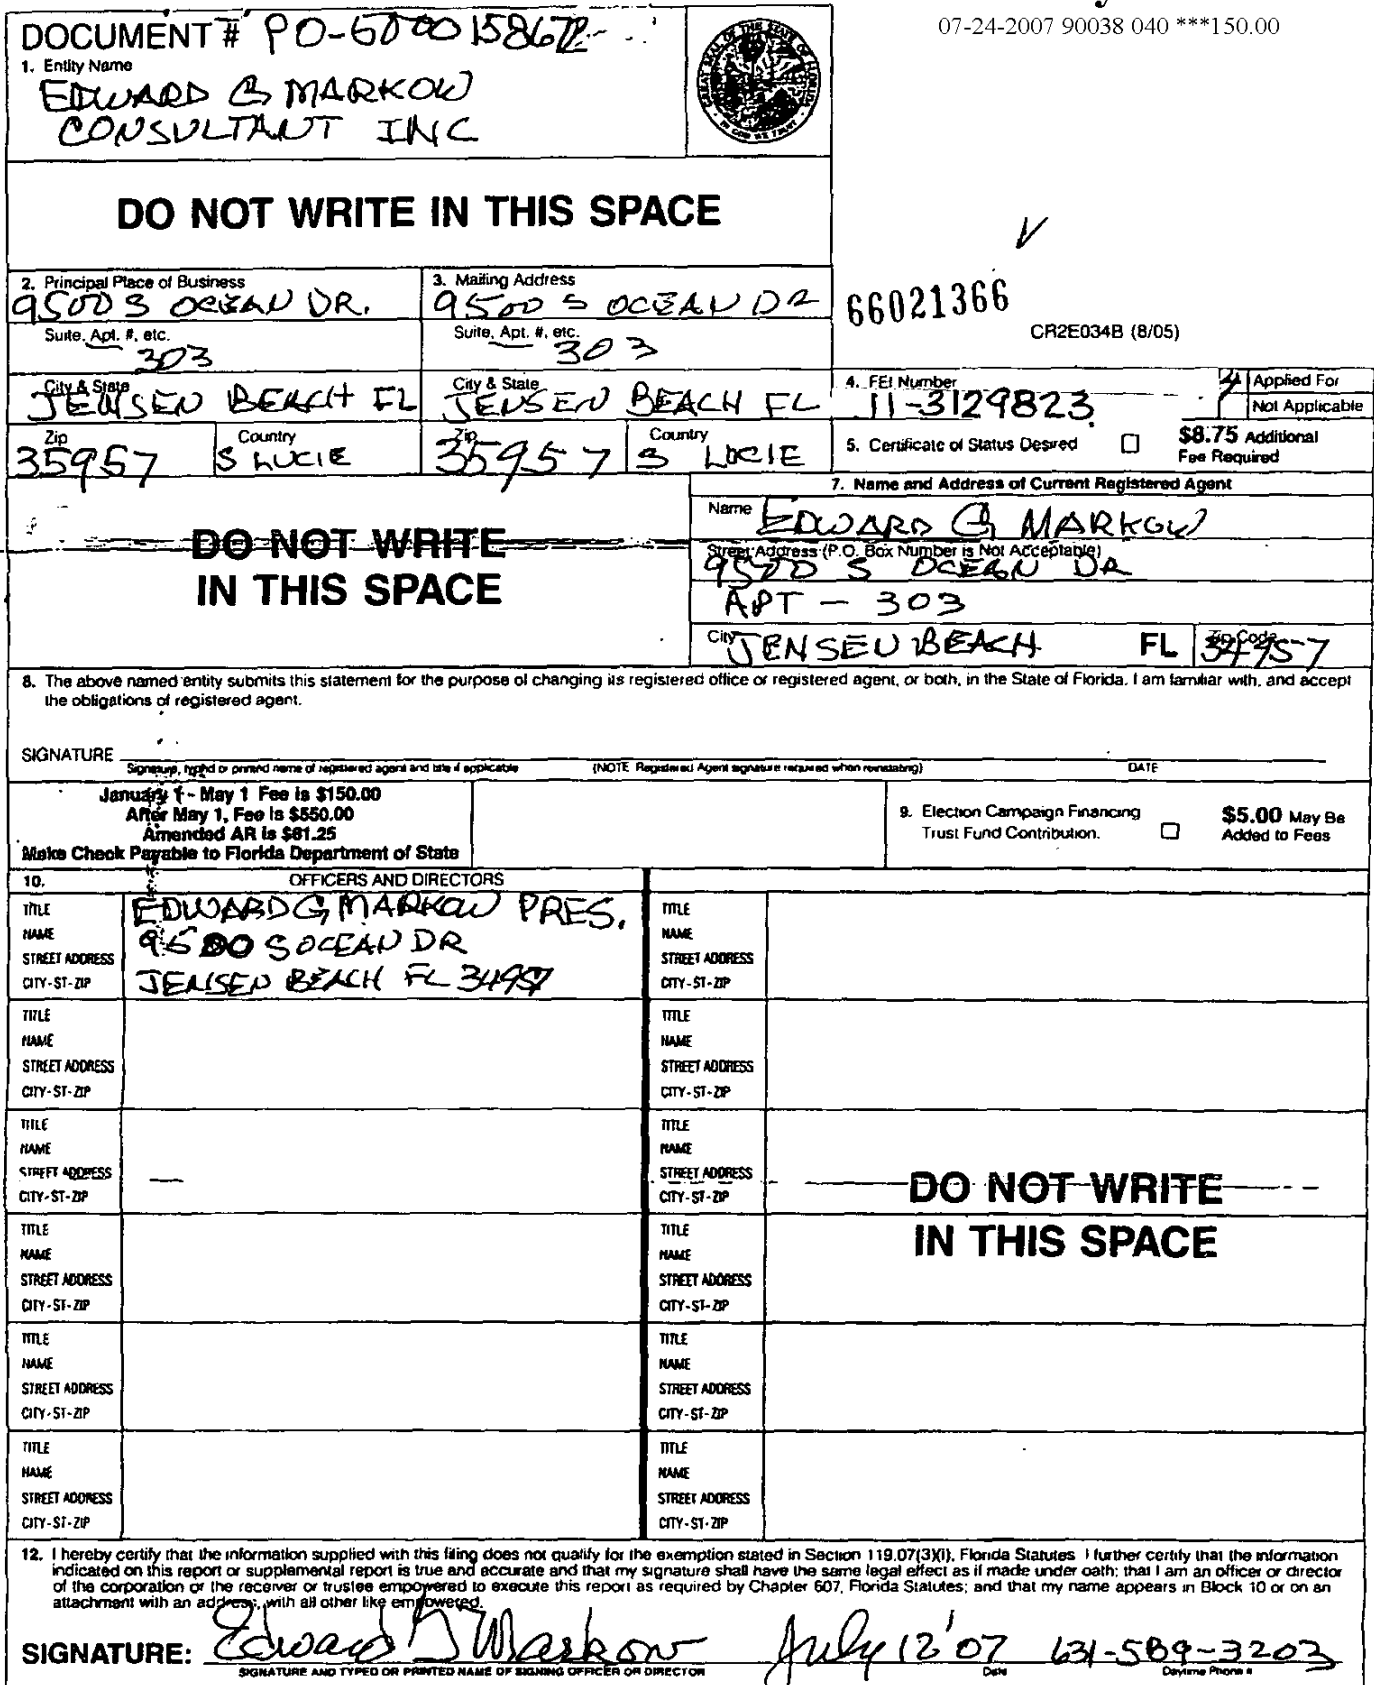 07-24-2007 90038 040 ***150.00
DOCUMENT #
1. Entity Name
EDWARD G MARKOW
CONSULTANT INC
DO NOT WRITE IN THIS SPACE
2. Principal Place of Business
9500 S OCEAN DR.
3. Mailing Address
9500 S OCEAN DR
66021366
CR2E034B (8/05)
Suite, Apt. #, etc.
303
Suite, Apt. #, etc.
303
City & State
JENSEN BEACH FL
City & State
JENSEN BEACH FL
4. FEI Number
11-3129823
Applied For
Not Applicable
Zip
35957
Country
S LUCIE
Zip
35957
Country
S LUCIE
5. Certificate of Status Desired
$8.75 Additional
Fee Required
DO NOT WRITE
IN THIS SPACE
7. Name and Address of Current Registered Agent
Name EDWARD G MARKOW
Street Address (P.O. Box Number is Not Acceptable)
9500 S OCEAN DR
APT - 303
City JENSEN BEACH FL Zip Code 34957
8. The above named entity submits this statement for the purpose of changing its registered office or registered agent, or both, in the State of Florida. I am familiar with, and accept
the obligations of registered agent.
SIGNATURE
Signature, typed or printed name of registered agent and title if applicable
(NOTE Registered Agent signature required when reinstating)
DATE
January 1 - May 1 Fee is $150.00
After May 1, Fee is $550.00
Amended AR is $61.25
Make Check Payable to Florida Department of State
9. Election Campaign Financing
Trust Fund Contribution.
$5.00 May Be
Added to Fees
10. OFFICERS AND DIRECTORS
TITLE
NAME
STREET ADDRESS
CITY-ST-ZIP
EDWARD G MARKOW PRES.
9500 S OCEAN DR
JENSEN BEACH FL 34957
TITLE
NAME
STREET ADDRESS
CITY-ST-ZIP
TITLE
NAME
STREET ADDRESS
CITY-ST-ZIP
TITLE
NAME
STREET ADDRESS
CITY-ST-ZIP
TITLE
NAME
STREET ADDRESS
CITY-ST-ZIP
TITLE
NAME
STREET ADDRESS
CITY-ST-ZIP
DO NOT WRITE
IN THIS SPACE
TITLE
NAME
STREET ADDRESS
CITY-ST-ZIP
TITLE
NAME
STREET ADDRESS
CITY-ST-ZIP
TITLE
NAME
STREET ADDRESS
CITY-ST-ZIP
TITLE
NAME
STREET ADDRESS
CITY-ST-ZIP
TITLE
NAME
STREET ADDRESS
CITY-ST-ZIP
TITLE
NAME
STREET ADDRESS
CITY-ST-ZIP
12. I hereby certify that the information supplied with this filing does not qualify for the exemption stated in Section 119.07(3)(i), Florida Statutes I further certify that the information
indicated on this report or supplemental report is true and accurate and that my signature shall have the same legal effect as if made under oath; that I am an officer or director
of the corporation or the receiver or trustee empowered to execute this report as required by Chapter 607, Florida Statutes; and that my name appears in Block 10 or on an
attachment with an address, with all other like empowered.
SIGNATURE: Edward G Markow July 12 '07 631-589-3203
SIGNATURE AND TYPED OR PRINTED NAME OF SIGNING OFFICER OR DIRECTOR
Date
Daytime Phone #